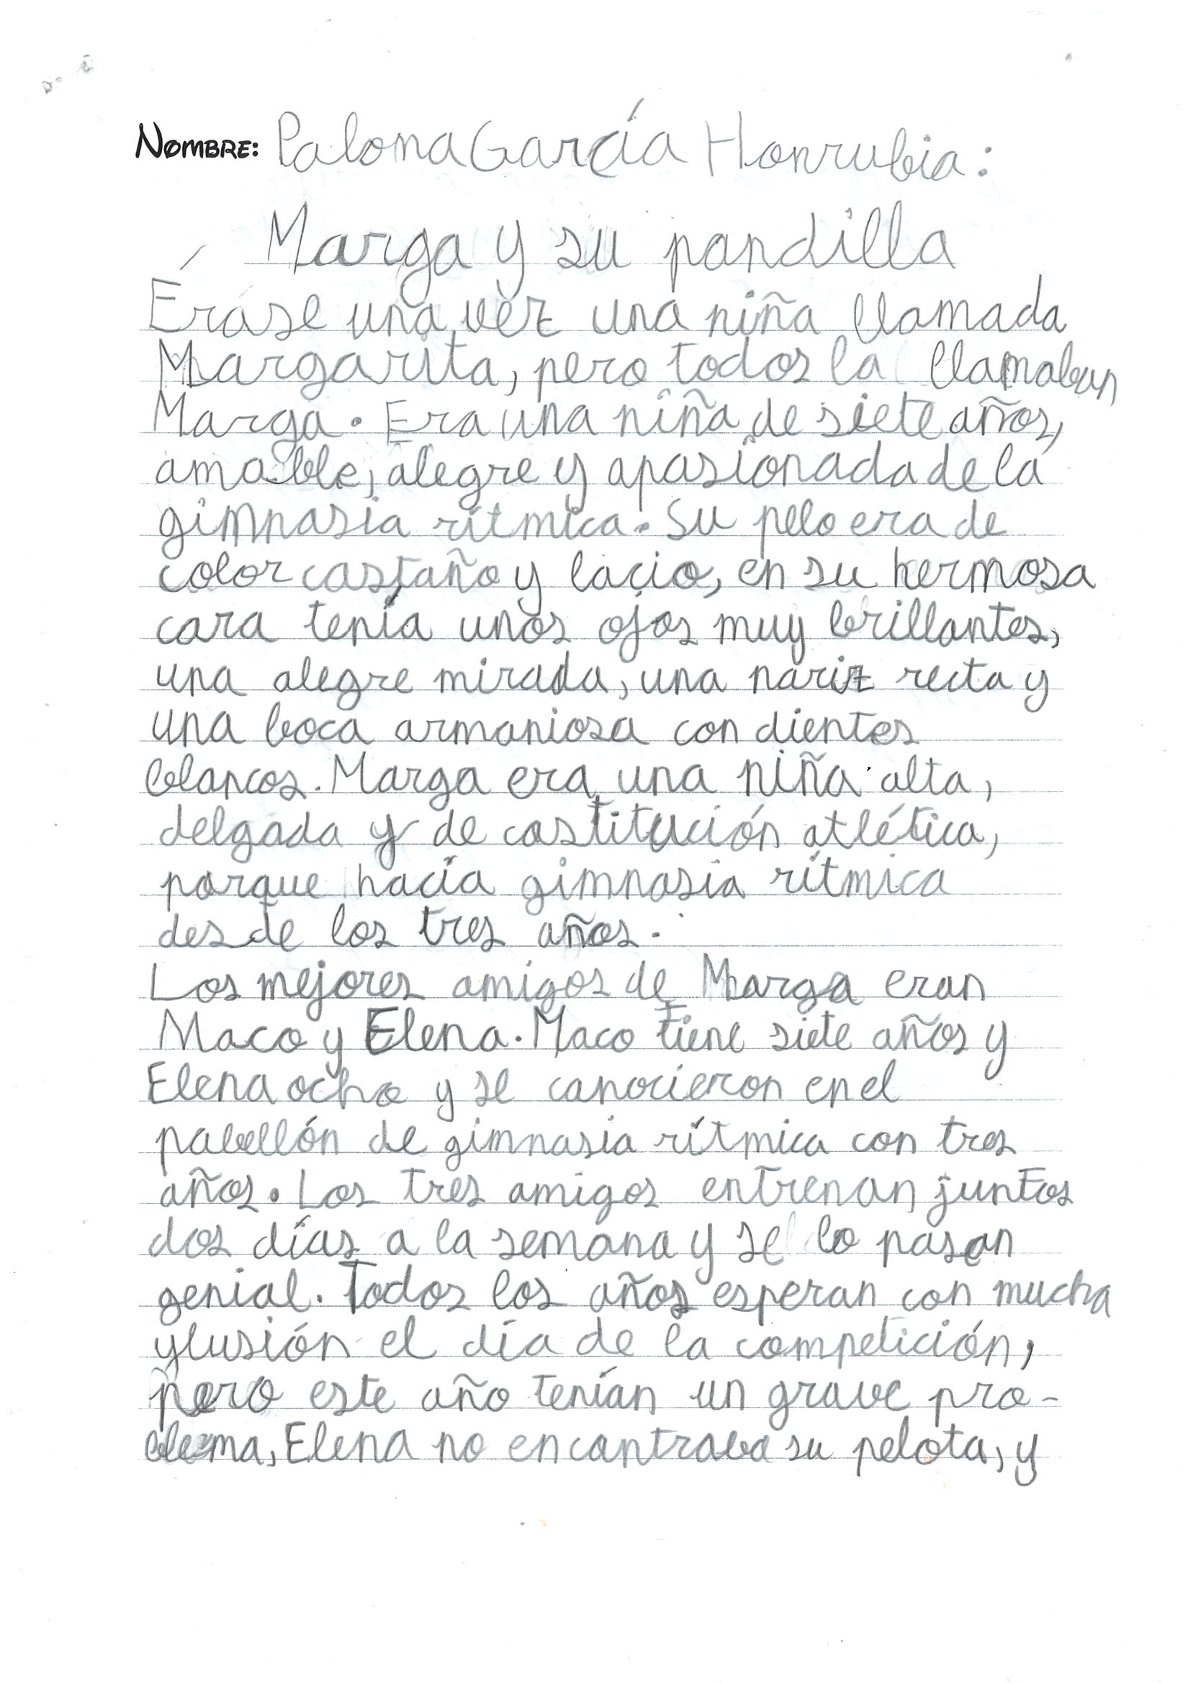 NOMBRE: Paloma García Honrubia:
Marga y su pandilla
Érase una vez una niña llamada
Margarita, pero todos la llamaban
Marga. Era una niña de siete años,
amable, alegre y apasionada de la
gimnasia rítmica. Su pelo era de
color castaño y lacio, en su hermosa
cara tenía unos ojos muy brillantes,
una alegre mirada, una nariz recta y
una boca armoniosa con dientes
blancos. Marga era una niña alta,
delgada y de costitución atlética,
porque hacía gimnasia rítmica
desde los tres años.
Los mejores amigos de Marga eran
Maco y Elena. Maco tiene siete años y
Elena ocho y se conocieron en el
pabellón de gimnasia rítmica con tres
años. Los tres amigos entrenan juntos
dos días a la semana y se lo pasan
genial. Todos los años esperan con mucha
ylusión el día de la competición,
pero este año tenían un grave pro-
blema, Elena no encontraba su pelota, y